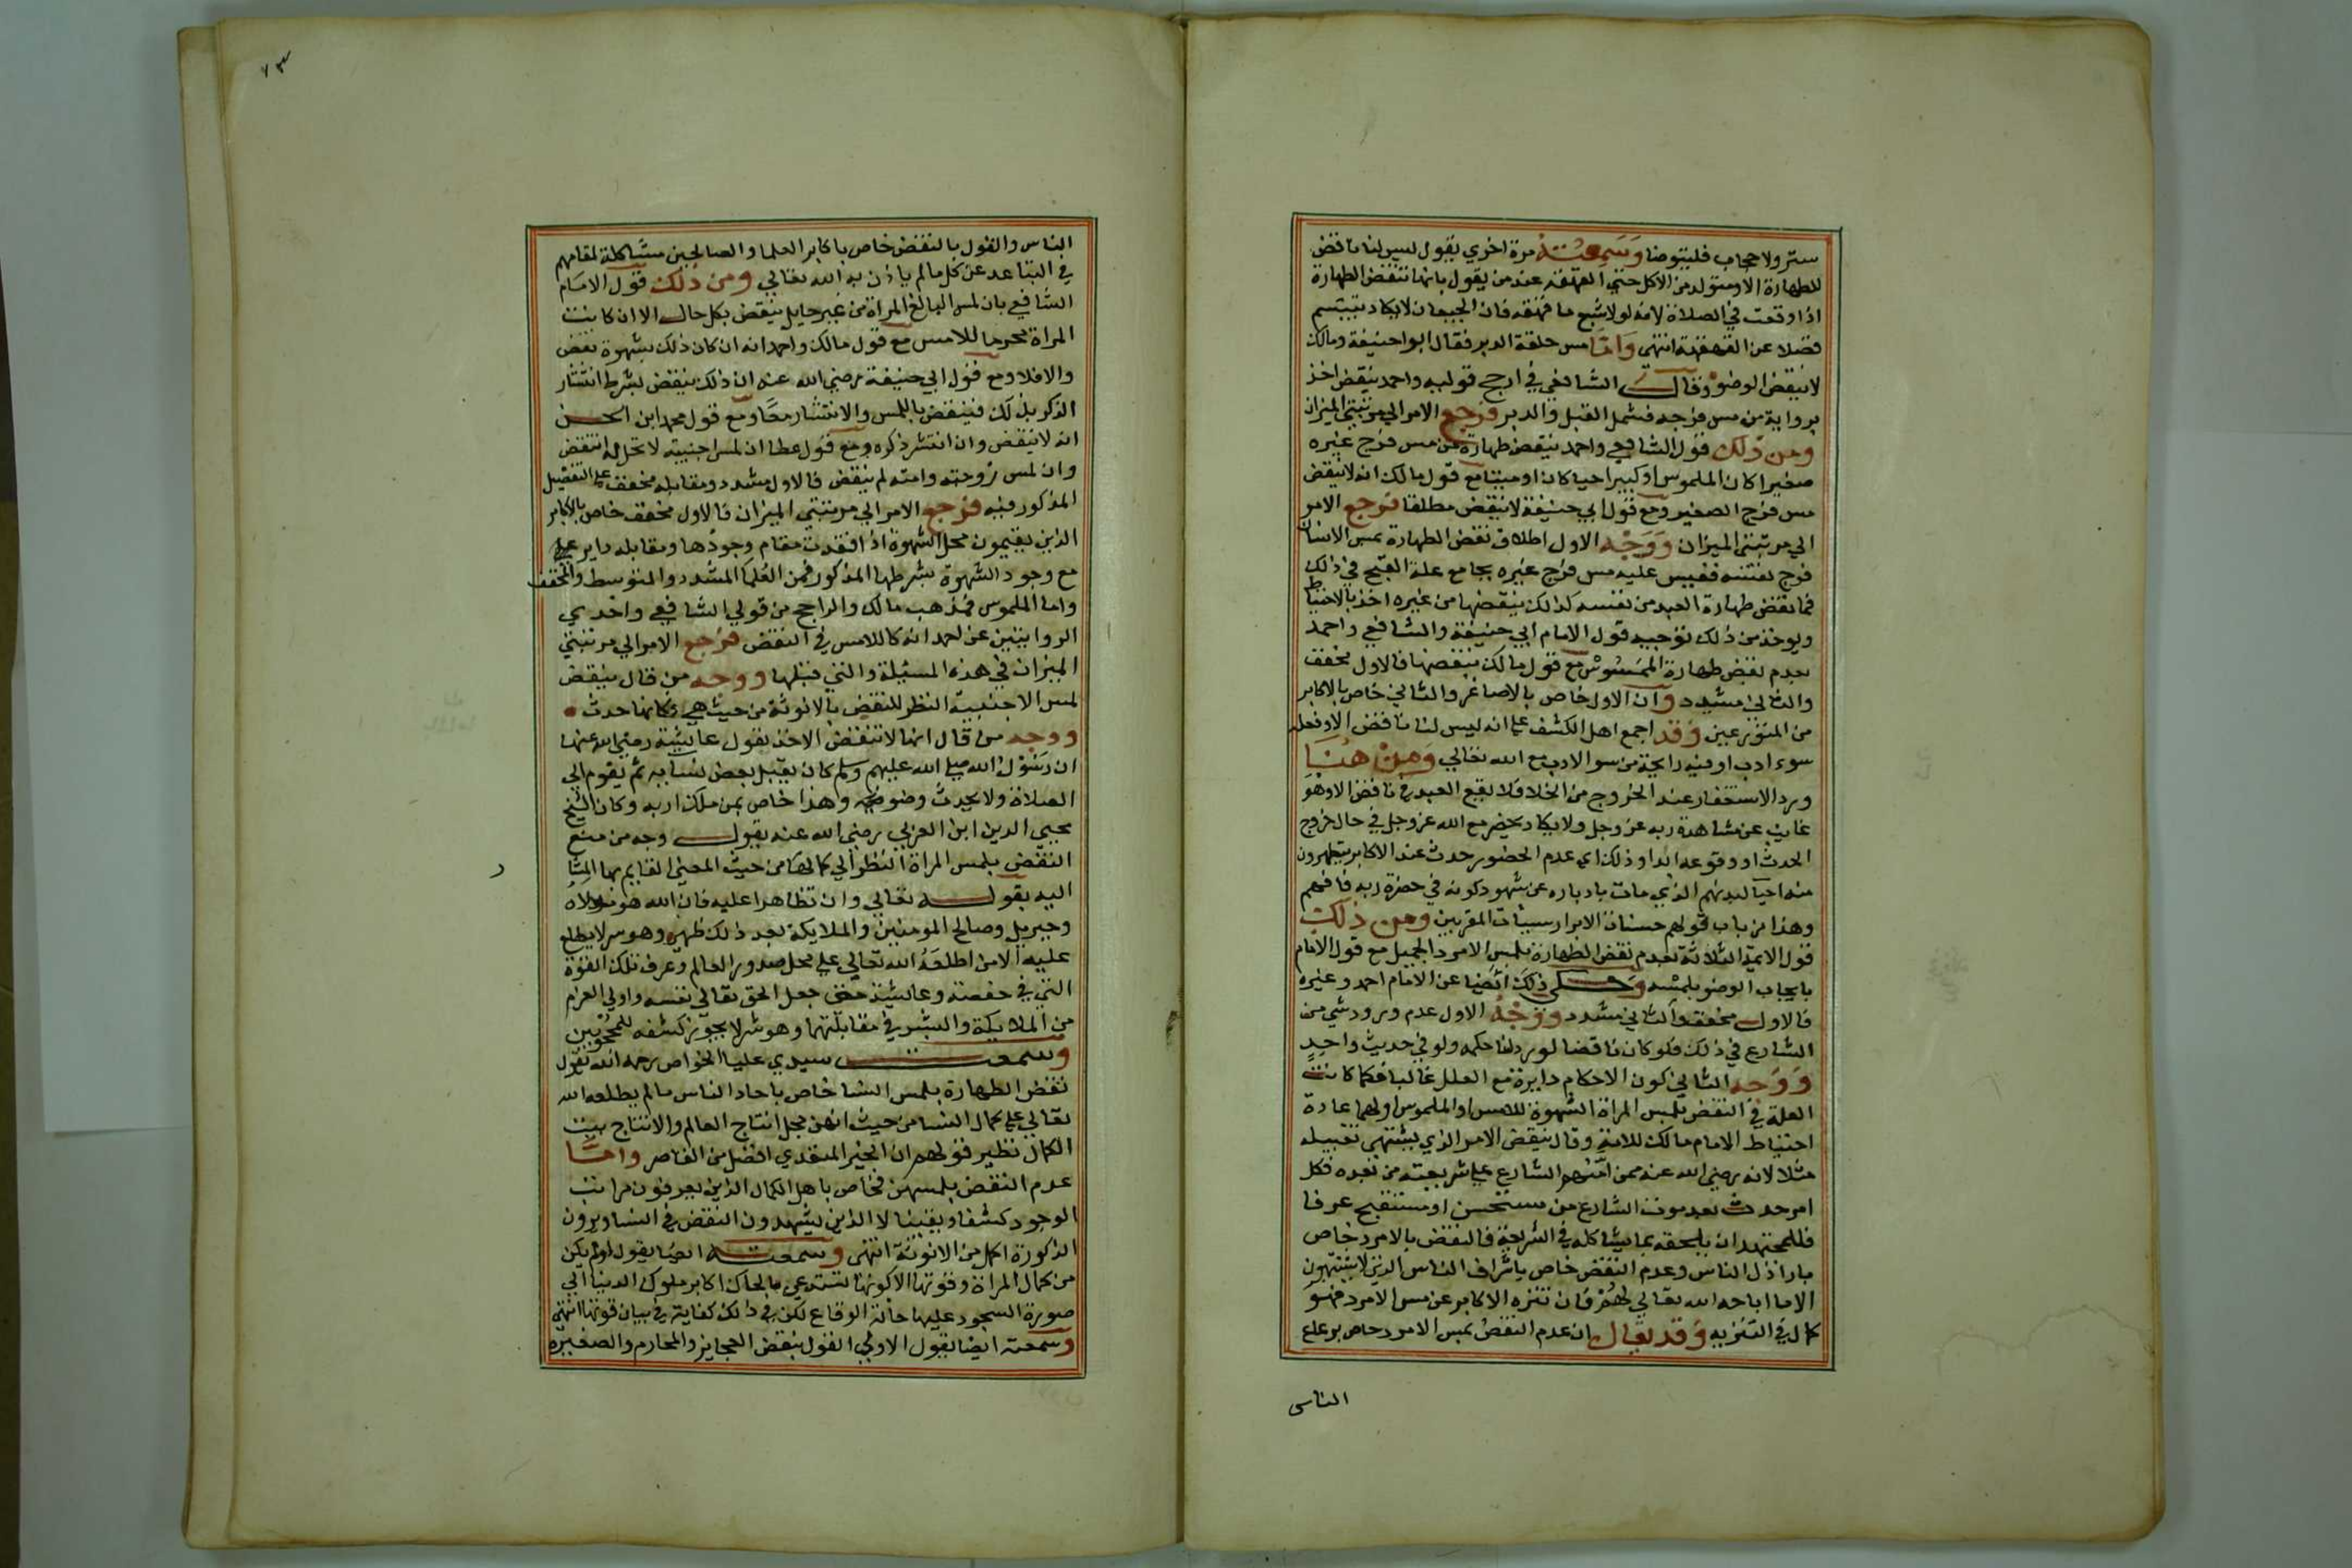 ستر ولا حجاب فليتوضا وَسَمِعْتُهُ مرة اخري يقول ليس لنا ناقض
للطهارة الا ومتولد من الاكل حتي القهقهه عند من يقول بانها تنقض الطهارة
اذا وقعت في الصلاة لانه لولا شبع ما قهقه فان الجيعان لا يكاد يتبسم
فضلا عن القهقهة انتهي وَامَّا مس حلقة الدبر فقال ابوا حنيفة ومالك
لا ينقض الوضوء وقال الشافعي في ارجح قوليه واحمد ينقض اخذ
برواية من مس فرجه فشمل القبل والدبر فرجع الامر الي مرتبتي الميزان
ومن ذلك قول الشافعي واحمد ينقض طهارة من مس فرج غيره
صغيرا كان الملموس او كبيرا حيا كان او ميتا مع قول مالك انه لا ينقض
مس فرج الصغير ومع قول ابي حنيفة لا ينقض مطلقا فرجع الامر
الي مرتبتي الميزان وَوَجْه الاول اطلاق نقض الطهارة بمس الانسان
فرج نفسه فقيس عليه مس فرج غيره بجامع علة القبح في ذلك
فما نقض طهارة العبد من نفسه كذلك ينقضها من غيره اخذ بالاحتياط
ويوخذ من ذلك توجيه قول الامام ابي حنيفة والشافعي واحمد
بعدم نقض طهارة الممسُوس مع قول مالك بنقضها فالاول مخفف
والثاني مشدد وان الاول خاص بالاصاغر والثاني خاص بالاكابر
من المتورعين وَقد اجمع اهل الكشف علي انه ليس لنا ناقض الا وفعله
سوء ادب او فيه رايحة من سو الادب مع الله تعالي وَمِنْ هُنَا
ورد الاستغفار عند الخروج من الخلا فلا يقع العبد في ناقض الا وهو
غايب عن مشاهدة ربه عز وجل ولا يكاد يحضر مع الله عز وجل في حال خروج
الحدث او وقوعه ابدا وذلك اي عدم الحضور حدث عند الاكابر يتطهرون
منه احيآ لبدنهم الذي مات بادباره عن شهود كونه في حضرة ربه فافهم
وهذا من باب قولهم حسنات الابرار سيئات المقربين ومن ذلك
قول الايمة الثلاثة بعدم نقض الطهارة بلمس الامرد الجميل مع قول الامام
بايجاب الوضو بلمسه وَحكي ذلك ايضا عن الامام احمد وغيره
فالاول مخفف والثاني مشدد وَوَجْهُ الاول عدم ورود شي من
الشارع في ذلك فلو كان ناقضا لورد لنا حكمه ولو في حديث واحد
وَوَجه الثاني كون الاحكام دايرة مع العلل غالبا فكما كانت
العلة في النقض بلمس المراة الشهوة للامس او الملموس او لهما عادة
احتياط الامام مالك للامة وقال ينقض الامر الذي يشتهي تقبيله
مثلا لانه رضي الله عنه ممن امّنهم الشارع علي شريعته من بعده فكل
امر حدث بعد موت الشارع من مستحسن او مستقبح عرفا
فللمجتهد ان يلحقه بما يشاكله في الشريعة فالنقض بالامرد خاص
باراذل الناس وعدم النقض خاص باشراف الناس الذين لا يشتهون
الا ما اباحه الله تعالي لهُمْ فان تنزه الاكابر عن مس الامرد فهو
كمال في التنزيه وَقد يقال ان عدم النقض بمس الامرد خاص برعاع
الناس
٧٣
الناس والقول بالنقض خاص باكابر العلما والصالحين مشاكلة لمقامهم
في التباعد عن كل ما لم ياذن به الله تعالي ومن ذلك قول الامام
الشافعي بان لمس البالغ المراة من غير حايل ينقض بكل حال الا ان كانت
المراة محرما للامس مع قول مالك واحمد انه ان كان ذلك بشهوة نقض
والا فلا ومع قول ابي حنيفة رضي الله عنه ان ذلك ينقض بشرط انتشار
الذكر بذلك فينقض باللمس والانتشار معًا ومع قول محمد ابن الحسن
انه لا ينقض وان انتشر ذكره ومع قول عطا ان لمس اجنبية لا تحل له انتقض
وان لمس زوجته وامته لم ينقض فالاول مشدد ومقابله مخفف علي التفصيل
المذكور فيه فرجع الامر الي مرتبتي الميزان فالاول مخفف خاص بالاكابر
الذين يقيمون محل الشهوة اذا فقدت مقام وجودها ومقابله داير علي
مع وجود الشهوة بشرطها المذكور فمن العُلما المشدد والمتوسط والمخفف
واما الملموس فمذهب مالك والراجح من قولي الشافعي واحدي
الروايتين عن احمد انه كاللامس في النقض فرجع الامر الي مرتبتي
الميزان في هذه المسئلة والتي قبلها ووجه من قال ينقض
لمس الاجنبية النظر للنقض بالانوثة من حيث هي وكانها حدث
ووجه من قال انها لا تنقض الاخذ بقول عايشة رضي الله عنها
ان رسول الله صلي الله عليهم وسلم كان يقبل بعض نسايه ثم يقوم الي
الصلاة ولا يحدث وضوءه وهذا خاص بمن ملك اربه وكان الشيخ
محيي الدين ابن العربي رضي الله عنه يقول وجه من منع
النقض بلمس المراة النظر الي كمالها من حيث المعني القايم بها المشا
اليه بقوله تعالي وان تظاهرا عليه فان الله هو مولاه
وجبريل وصالح المومنين والملايكة بعد ذلك ظهير وهو سر لا يطلع
عليه الا من اطلعَهُ الله تعالي علي محل صدور العالم وعرف تلك القوة
التي في حفصة وعايشة حتي جعل الحق تعالي نفسه واولي العزم
من الملايكة والبشر في مقابلتهما وهو سر لا يجوز كشفه للمحجوبين
وسمعت سيدي عليا الخواص رحمه الله يقول
نقض الطهارة بلمس النسا خاص باحاد الناس ما لم يطلعه الله
تعالي علي كمال النسا من حيث انهن محل انتاج العالم والانتاج بيت
الكمال نظير قولهم ان الخير المتعدي افضل من القاصر وامَّا
عدم النقض بلمسهن فخاص باهل الكمال الذين يعرفون مراتب
الوجود كشفا ويقينا لا الذين يشهدون النقض في النسا ويرون
الذكورة اكمل من الانوثة انتهي وسمعته ايضا يقول لو لم يكن
من كمال المراة وقوتها الا كونها تستدعي ما بحاك اكابر ملوك الدنيا الي
صورة السجود عليها حالة الوقاع لكن في ذلك كفاية في بيان قوتها انتهي
وسمعته ايضا يقول الاولي القول بنقض العجايز والمحارم والصغيرة